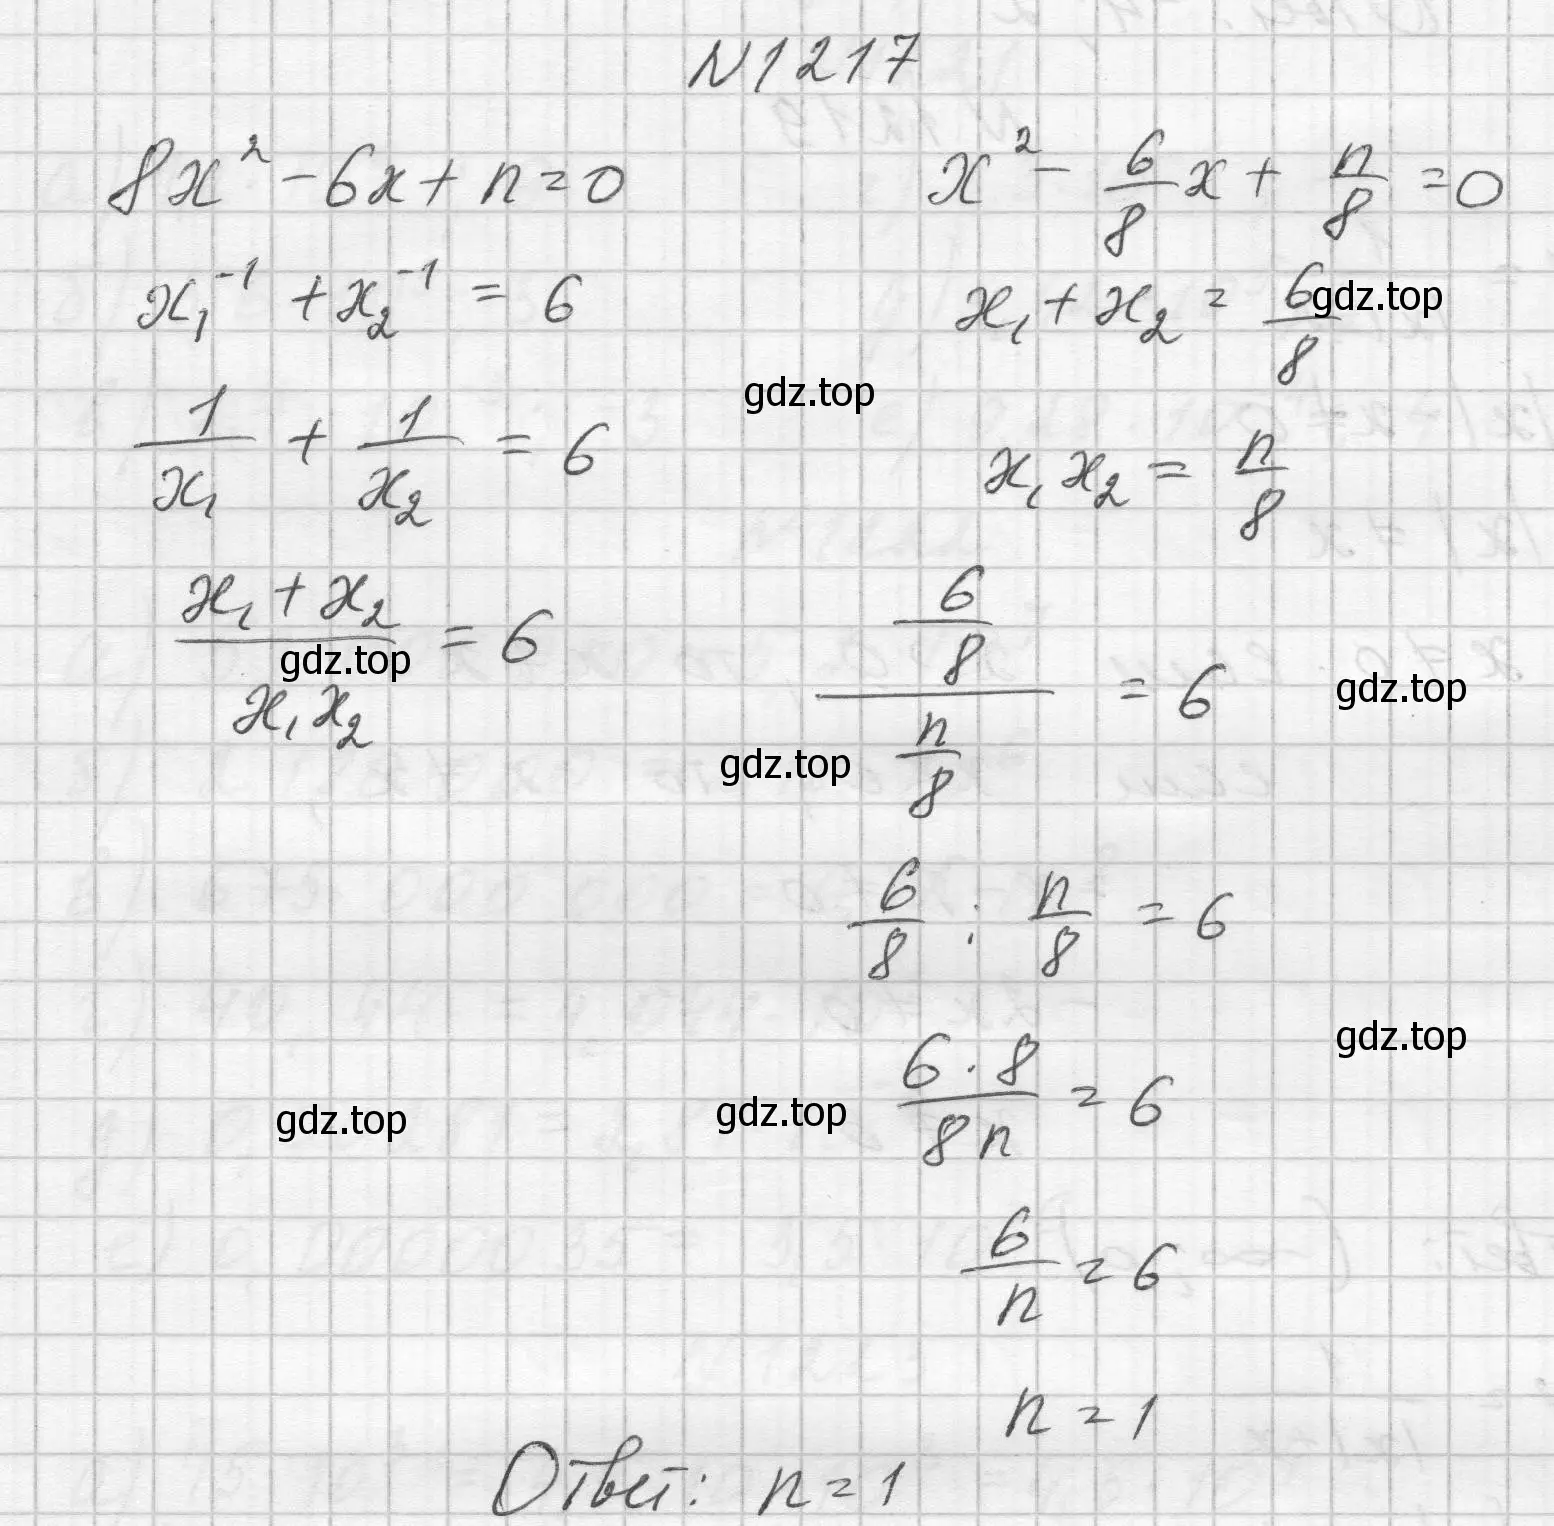 N1217
8x² - 6x + n = 0
x₁⁻¹ + x₂⁻¹ = 6
1/x₁ + 1/x₂ = 6
(x₁ + x₂)/(x₁x₂) = 6
x² - 6/8 x + n/8 = 0
x₁ + x₂ = 6/8
x₁x₂ = n/8
(6/8)/(n/8) = 6
6/8 : n/8 = 6
(6 · 8)/(8n) = 6
6/n = 6
n = 1
Ответ: n = 1
gdz.top
gdz.top
gdz.top
gdz.top
gdz.top
gdz.top
gdz.top
gdz.top